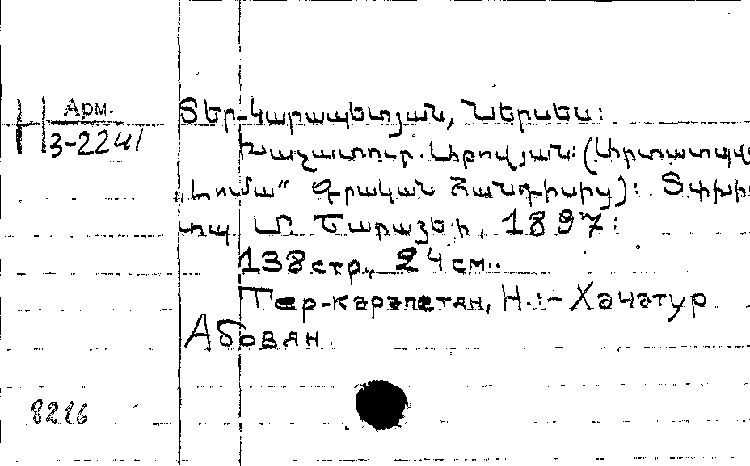 Арм.
Н 3-2241
Տեր-Կարապետյան, Ներսես:
Խաչատուր Աբովյան: (Արտատպվ
„Լումա” Գրական Հանդիսից): Տփխիս
տպ. Մ. Շարաձեի, 1897:
138 стр., 24 см..
Тер-карапетян, Н.:- Хачатур
Абовян.
8226